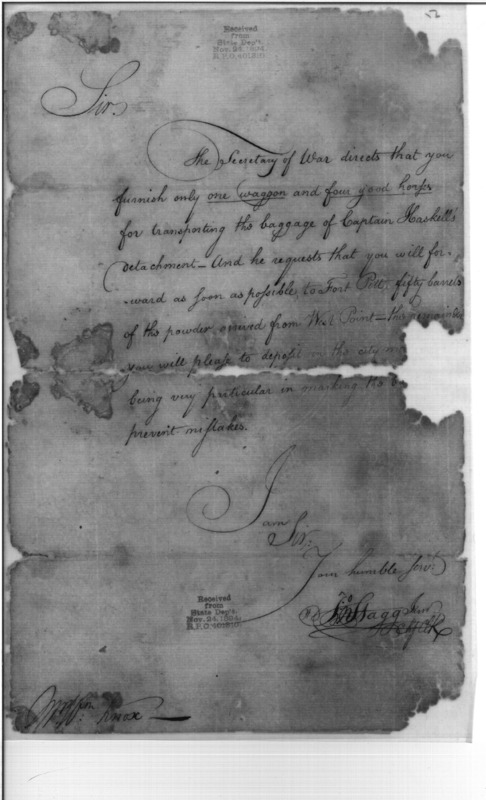 Received
from
State Dep't.
Nov. 24, 1894
R.P.O. 401310.
Sir.
The Secretary of War directs that you
furnish only one waggon and four good horses
for transporting the baggage of Captain Haskell's
detachment – And he requests that you will for-
-ward as soon as possible to Fort Pitt fifty barrels
of the powder arrived from West Point – the remainder
you will please to deposit in the city
being very particular in marking the
prevent mistakes.
I am
Sir:
Your humble Serv:
Jno Stagg Junr
Received
from
State Dep't.
Nov. 24, 1894
R.P.O. 401310.
Knox